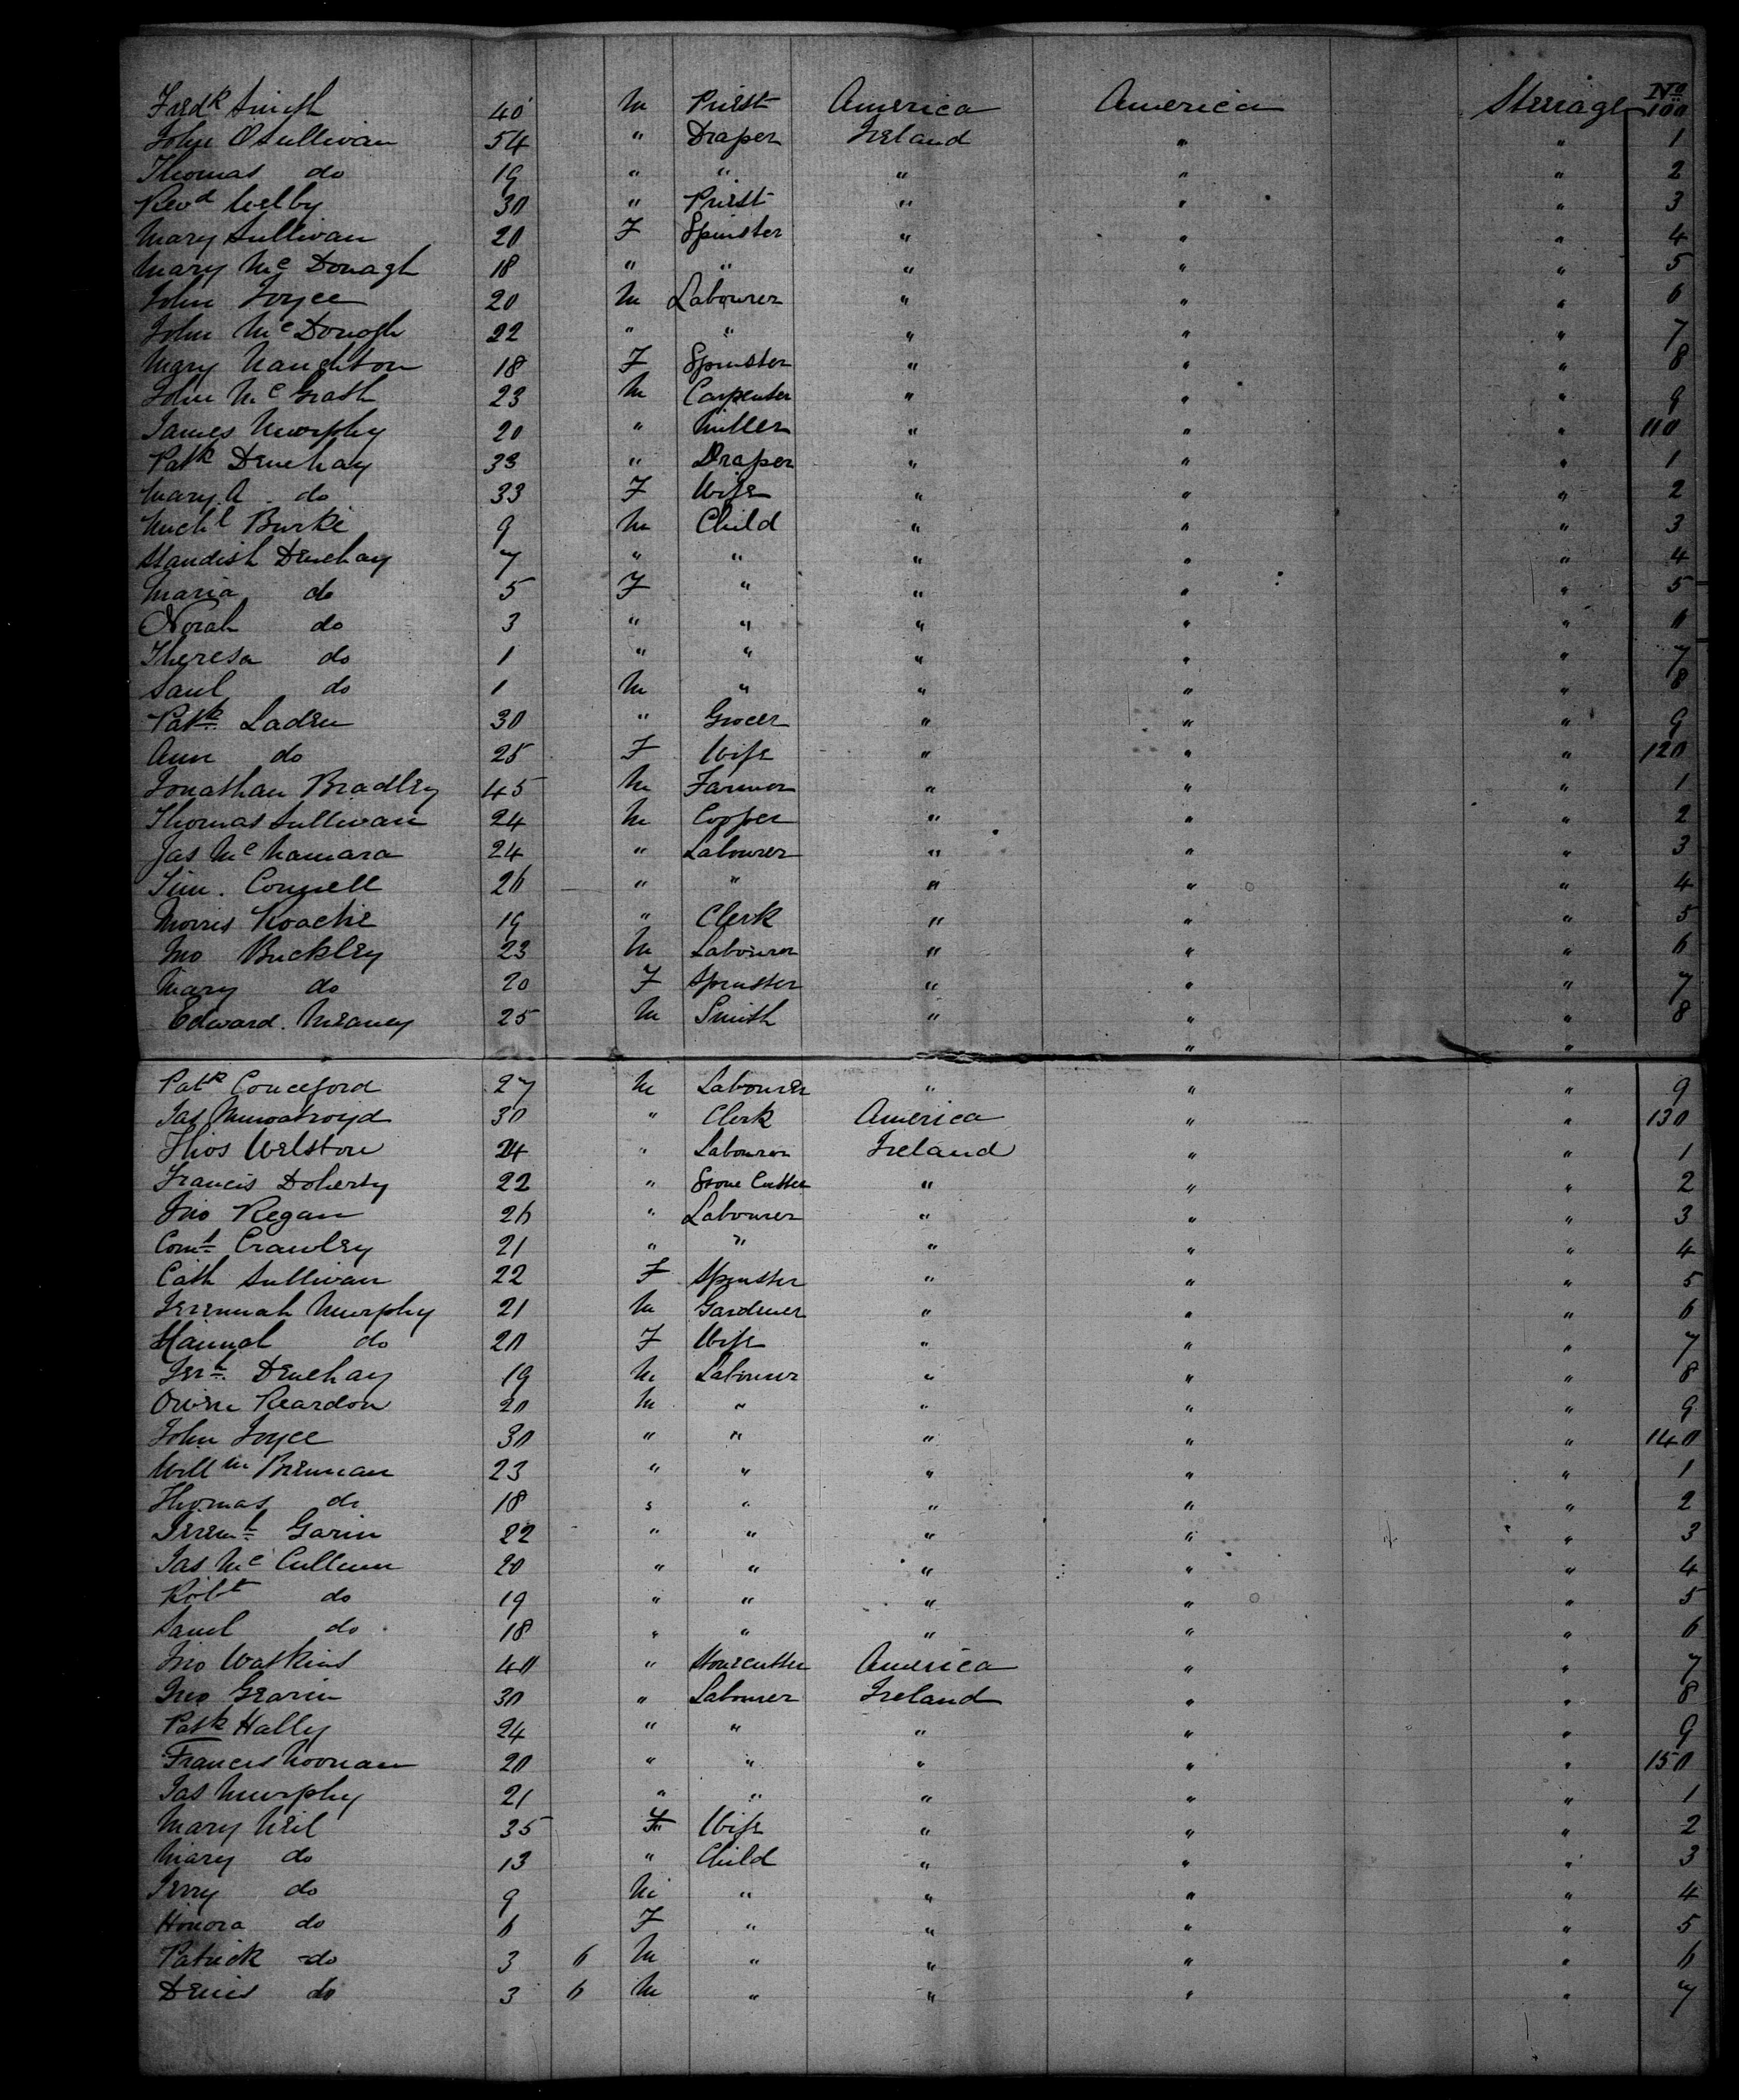 No
Fredk Smith 40 M Priest America America Steerage 100
John OSullivan 54 " Draper Ireland " " 1
Thomas do 19 " " " " " 2
Revd Welby 30 " Priest " " " 3
Mary Sullivan 20 F Spinster " " " 4
Mary Mc Donagh 18 " " " " " 5
John Joyce 20 M Labourer " " " 6
John McDonogh 22 " " " " " 7
Mary Naughton 18 F Spinster " " " 8
John Mc Grath 23 M Carpenter " " " 9
James Murphy 20 " Miller " " " 110
Patk Denehay 33 " Draper " " " 1
Mary A do 33 F Wife " " " 2
Michl Burke 9 M Child " " " 3
Standish Denehay 7 " " " " " 4
Maria do 5 F " " " " 5
Norah do 3 " " " " " 6
Theresa do 1 " " " " " 7
Saml do 1 M " " " " 8
Patk Laden 30 " Grocer " " " 9
Ann do 25 F Wife " " " 120
Jonathan Bradley 45 M Farmer " " " 1
Thomas Sullivan 24 M Copper " " " 2
Jas Mc Namara 24 " Labourer " " " 3
Tim. Connell 26 " " " " " 4
Morris Roache 19 " Clerk " " " 5
Jno Buckley 23 M Labourer " " " 6
Mary do 20 F Spinster " " " 7
Edward Meaney 25 M Smith " " " 8
" "
Patk 27 M Labourer " " " 9
Jas Murgatroyd 30 " Clerk America " " 130
Thos Welston 24 " Labourer Ireland " " 1
Francis Doherty 22 " Stone Cutter " " " 2
Jno Regan 26 " Labourer " " " 3
Corns Crawley 21 " " " " " 4
Cath Sullivan 22 F Spinster " " " 5
Jeremiah Murphy 21 M Gardener " " " 6
Hannah do 20 F Wife " " " 7
Jerh Denehay 19 M Labourer " " " 8
Owen Reardon 20 M " " " " 9
John Joyce 30 " " " " " 140
Willm Brennan 23 " " " " " 1
Thomas do 18 " " " " " 2
Jeremh Garin 22 " " " " " 3
Jas Mc Cullum 20 " " " " " 4
Robt do 19 " " " " " 5
Saml do 18 " " " " " 6
Jno Watkins 40 " Stonecutter America " " 7
Jno Gearin 30 " Labourer Ireland " " 8
Patk Hally 24 " " " " " 9
Francis Noonan 20 " " " " " 150
Jas Murphy 21 " " " " " 1
Mary Neil 35 F Wife " " " 2
Mary do 13 " Child " " " 3
Jerry do 9 M " " " " 4
Honora do 6 F " " " " 5
Patrick do 3 6 M " " " " 6
Denis do 3 6 M " " " " 7